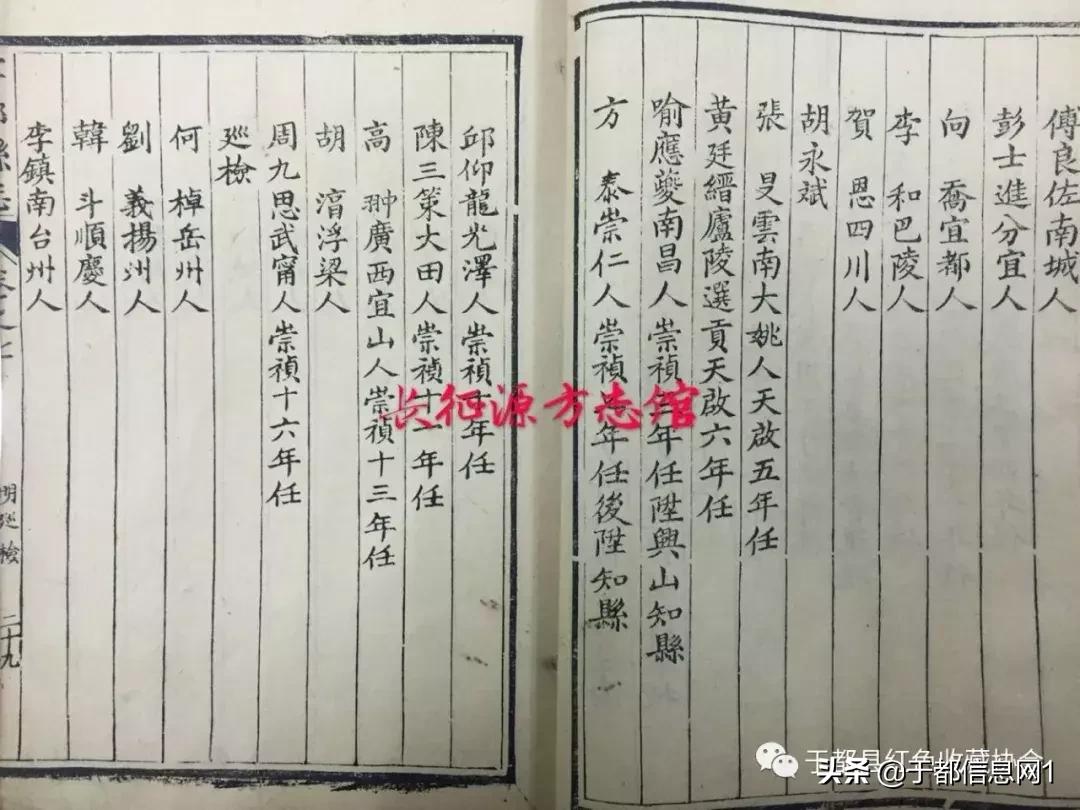 傅良佐南城人
彭士進分宜人
向　喬宜都人
李　和巴陵人
賀　恩四川人
胡永斌
張　旻雲南大姚人天啟五年任
黃廷縉廬陵選貢天啟六年任
喻應夔南昌人崇禎三年任陞興山知縣
方　泰崇仁人崇禎年任後陞知縣
邱仰龍光澤人崇禎十年任
陳三策大田人崇禎十一年任
高　翀廣西宜山人崇禎十三年任
胡　湻浮梁人
周九思武甯人崇禎十六年任
廵檢
何　棹岳州人
劉　義揚州人
韓　斗順慶人
李鎮南台州人
縣志
明廵檢
二十九
长征源方志馆
于都县红色收藏协会
头条@于都信息网1